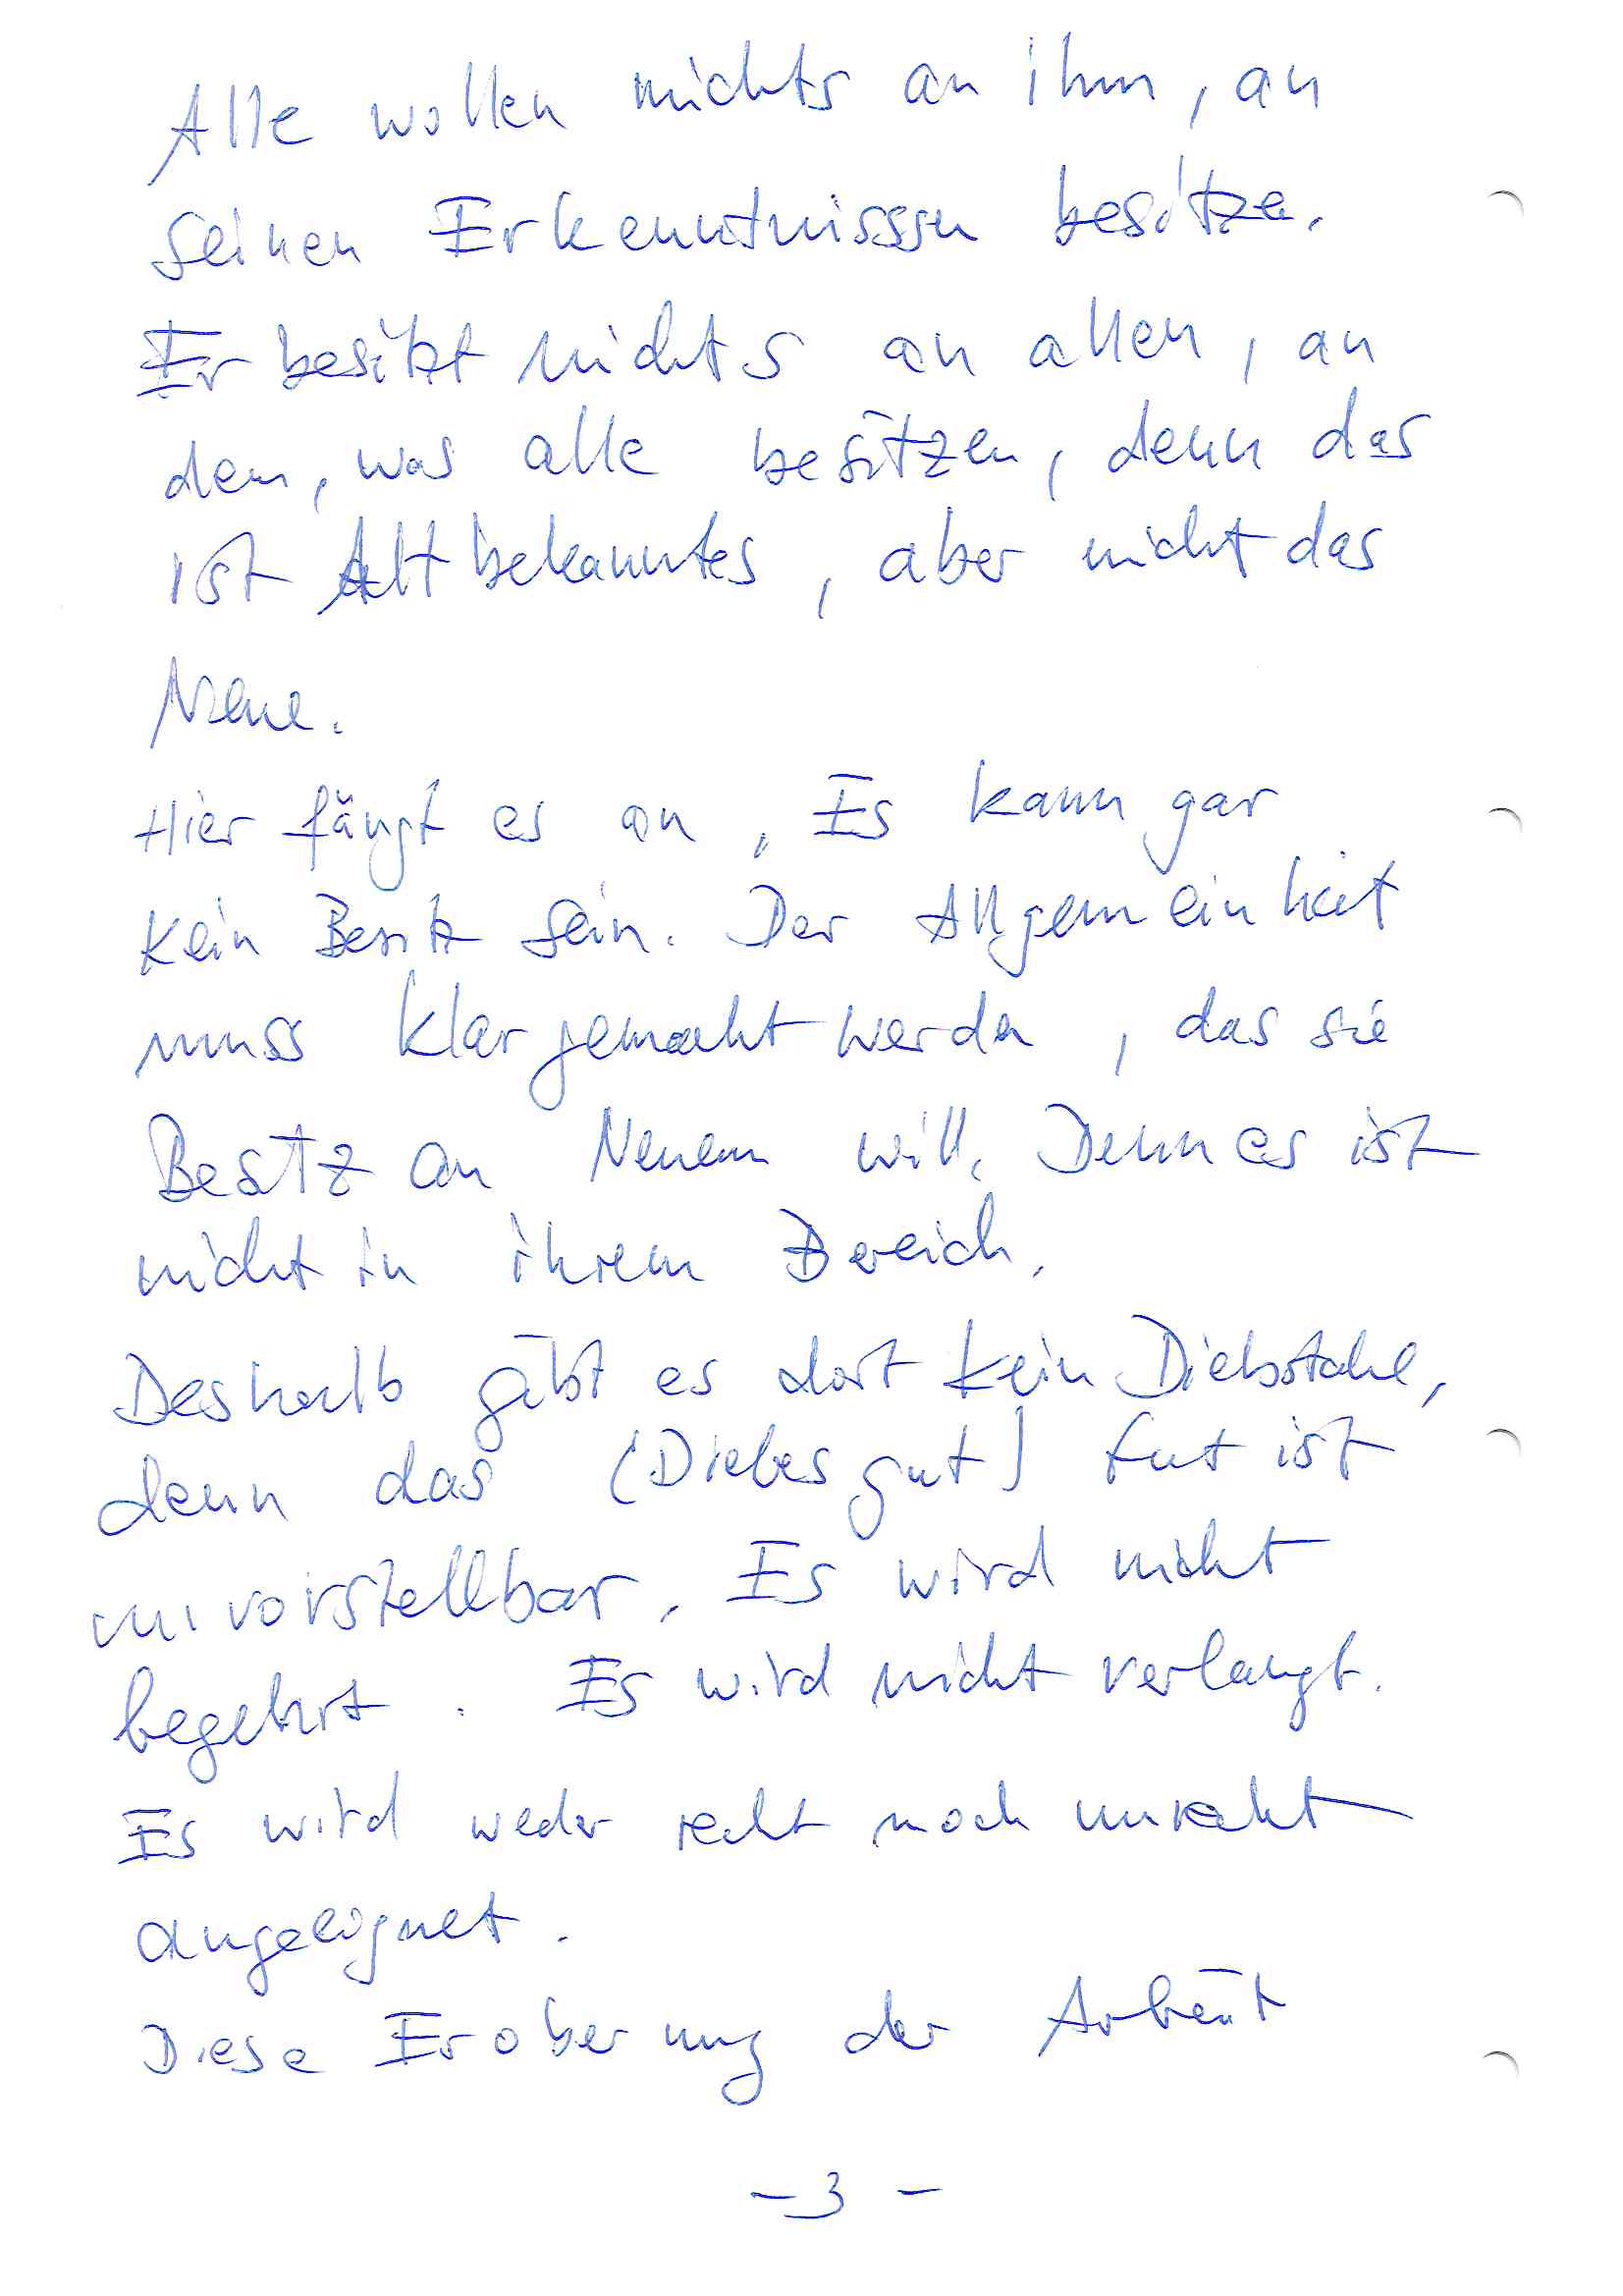 Alle wollen nichts an ihm, an
seinen Erkenntnisssn besitze.
Er besitzt nichts an allen, an
dem, was alle besitzen, denn das
ist Altbekanntes, aber nicht das
Neue.
Hier fängt es an. Es kann gar
kein Besitz sein. Der Allgemeinheit
muss klar gemacht werden, das sie
Besitz an Neuem will. Denn es ist
nicht in ihrem Bereich.
Deshalb gibt es dort kein Diebstahl,
denn das (Diebesgut) Gut ist
unvorstellbar. Es wird nicht
begehrt. Es wird nicht verlangt.
Es wird weder recht noch unrecht
angeeignet.
Diese Eroberung der Arbeit
- 3 -